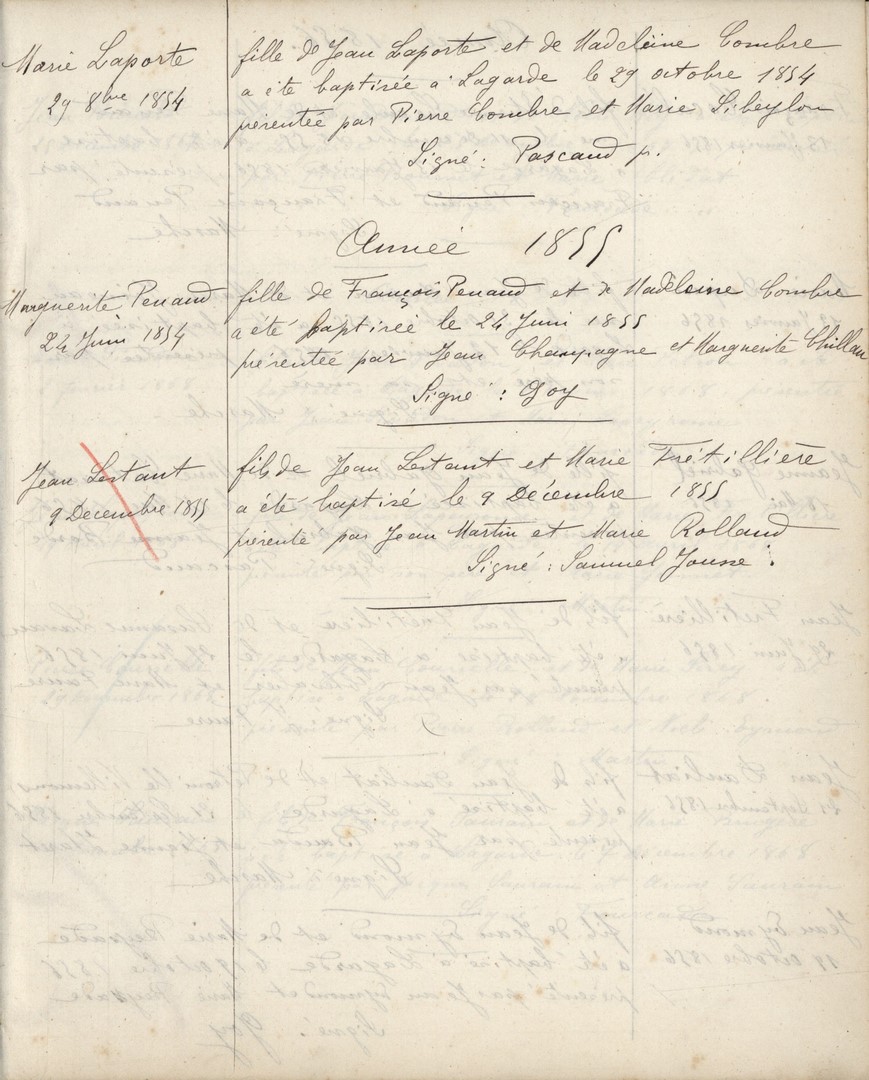 Marie Laporte
29 8bre 1854
fille de Jean Laporte et de Madeleine Combre
a été baptisée à Lagarde le 29 octobre 1854
présentée par Pierre Combre et Marie Sibeylon
Signé : Pascaud p.
Année 1855
Marguerite Penaud
24 Juin 1854
fille de François Penaud et de Madeleine Combre
a été baptisée le 24 Juin 1855
présentée par Jean Champagne et Marguerite Chillau
Signé : Goy
Jean Lestant
9 Decembre 1855
fils de Jean Lestant et Marie Frétillière
a été baptisé le 9 Décembre 1855
présenté par Jean Martin et Marie Rolland
Signé : Samuel Jousse